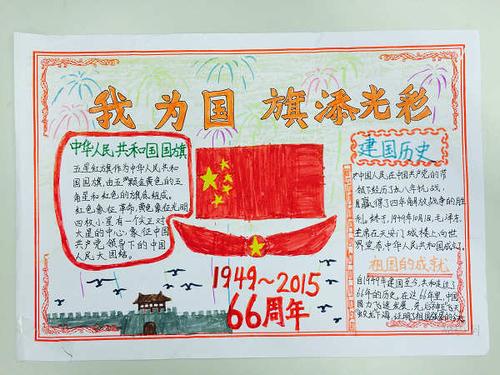 我为国旗添光彩
中华人民共和国国旗
五星红旗作为中华人民共和
国国旗,由五颗金黄色的五
角星和红色的旗底组成。
红色象征革命,黄色象征光明
四枚小星有一个尖正对
大星的中心,象征中国
共产党领导下的中国
人民大团结。
1949~2015
66周年
建国历史
中国人民在中国共产党的带
领下经历了八年抗战,
取得了四年解放战争的胜
利。终于,1949年10月1日,毛泽东
主席在天安门城楼上向世
界宣布中华人民共和国成立。
祖国的成就
自1949年建国至今,共和走过了
66年的历史,在这66年里,中国
国力飞速发展